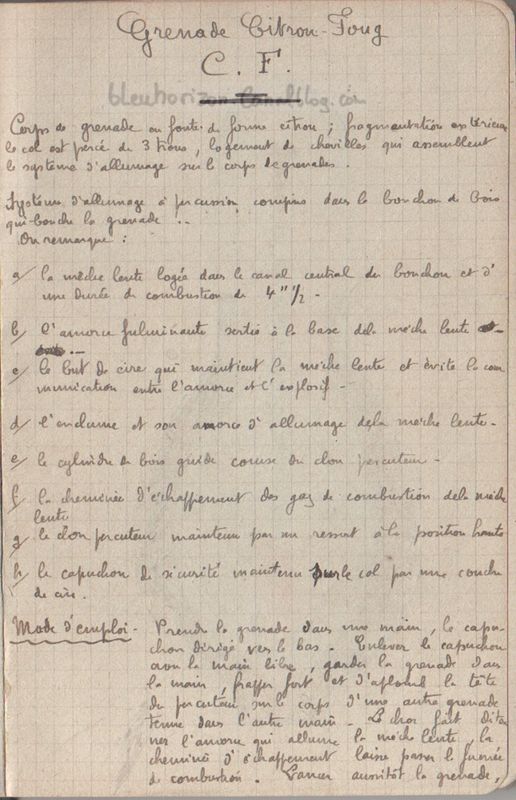 Grenade Citron-Foug
C. F.
bleuhorizon.canalblog.com
Corps de grenade en fonte de forme citron ; fragmentation extérieure
le col est percé de 3 trous, logement de chevilles qui assemblent
le système d'allumage sur le corps de grenades.
Système d'allumage à percussion compris dans le bouchon de bois
qui bouche la grenade ..
On remarque :
a/ la mèche lente logée dans le canal central du bouchon et d'
une durée de combustion de 4"1/2 -
b/ l'amorce fulminante sertie à la base de la mèche lente
c/ le but de cire qui maintient la mèche lente et évite la com
munication entre l'amorce et l'explosif -
d/ l'enclume et son amorce d'allumage de la mèche lente -
e/ le cylindre de bois guide course du clou percuteur -
f/ la cheminée d'échappement des gaz de combustion de la mèche
lente
g/ le clou percuteur maintenu par un ressort à la position haute
h/ le capuchon de sécurité maintenu sur le col par une couche
de cire.
Mode d'emploi - Prendre la grenade dans une main, le capu-
chon dirigé vers le bas. Enlever le capuchon
avec la main libre, garder la grenade dans
la main, frapper fort et d'aplomb la tête
du percuteur sur le corps d'une autre grenade
tenue dans l'autre main - Le choc fait déton
ner l'amorce qui allume la mèche lente, la
cheminée d'échappement laisse passer la fumée
de combustion. Lancer aussitôt la grenade,